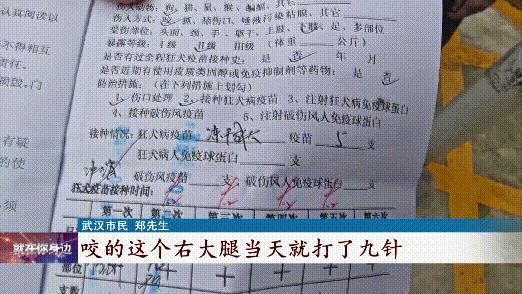 认真阅读以
不得相互
责任。
损毁, 门
有疑
的使
须
伤人动物：狗、猫、鼠、猴、蝙蝠、其它
伤人方式：咬、抓、舔伤口、唾液污染粘膜、其它
受伤部位：头面、颈、手、躯干、上肢、下肢、足、多部位
暴露等级：I级 II级 III级 (体重 公斤)
是否有过全程狂犬疫苗接种史：是 否 年 月
是否近期有使用皮质类固醇或免疫抑制剂等药物：是 否
防治措施：(在下列措施上划勾)
1、伤口处理 2、接种狂犬病疫苗 3、注射狂犬病免疫球蛋白
4、接种破伤风疫苗 5、注射破伤风人免疫球蛋白
接种情况：狂犬病疫苗 疫苗 5 支
狂犬病人免疫球蛋白 支
破伤风疫苗 支 破伤风免疫球蛋白 支
狂犬疫苗接种时间：
第一次 第二次 第五次 第六次
部位
支数
武汉市民 郑先生
就在你身边
咬的这个右大腿当天就打了九针